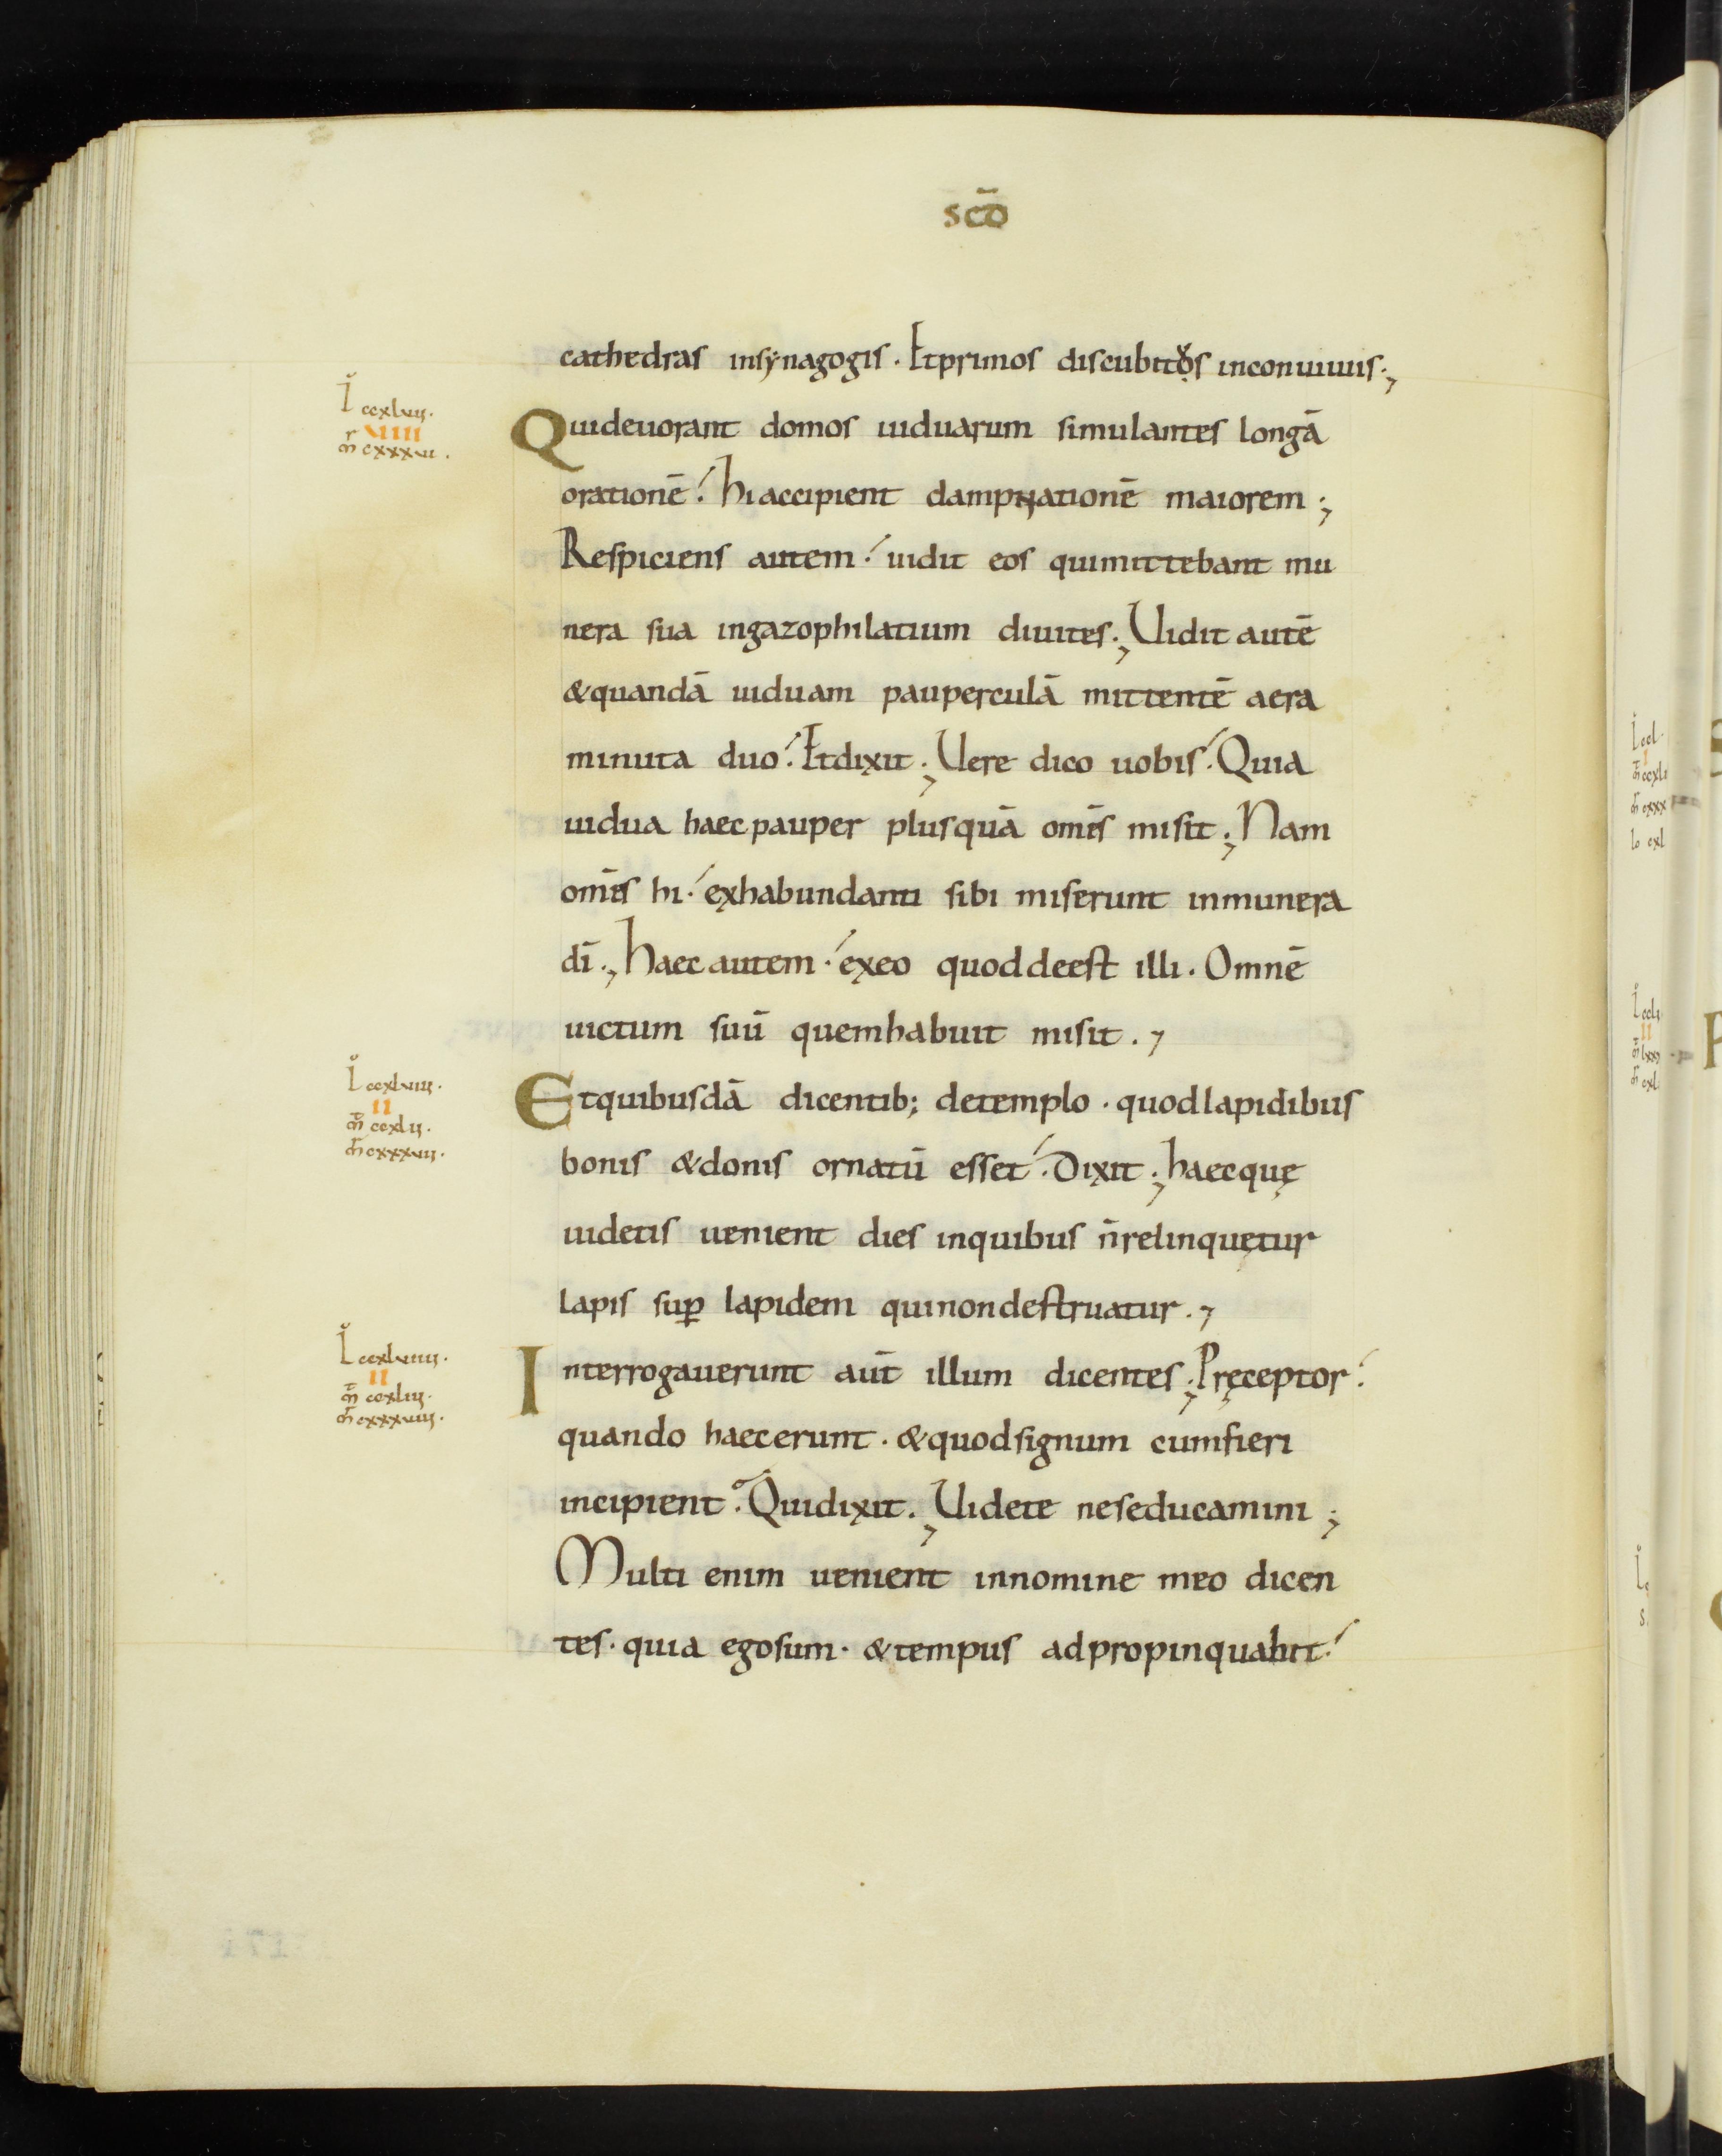 scō
cathedras insynagogis. Etprimos discubitos inconuiuiis.,
Quideuorant domos uiduarum simulantes longā
orationē. hi accipient dampnationē maiorem;
Respiciens autem. uidit eos quimittebant mu
nera sua ingazophilatium diuites; Uidit autē
&quandā uiduam pauperculā mittentē aera
minuta duo. Etdixit; Uere dico uobis. Quia
uidua haec pauper plusquā om̄s misit; Nam
om̄s hi. exhabundanti sibi miserunt inmunera
dī; haec autem. exeo quod deest illi. Omnē
uictum suū quemhabuit misit.,
Etquibusdā dicentib; detemplo. quodlapidibus
bonis &donis ornatū esset. Dixit; haecquę
uidetis uenient dies inquibus n̄relinquetur
lapis sup̄ lapidem quinondestruatur.,
Interrogauerunt aut̄ illum dicentes; Pręceptor.
quando haecerunt. &quodsignum cumfieri
incipient. Quidixit; Uidete neseducamini;
Multi enim uenient innomine meo dicen
tes. quia egosum. &tempus adpropinquabit.
L ccxlvii.
r VIIII
m̄ cxxxvi.
L ccxlviii.
II
m̄ ccxlii.
m̄ cxxxvii.
L ccxlviiii.
II
m̄ ccxliii.
m̄ cxxxviii.